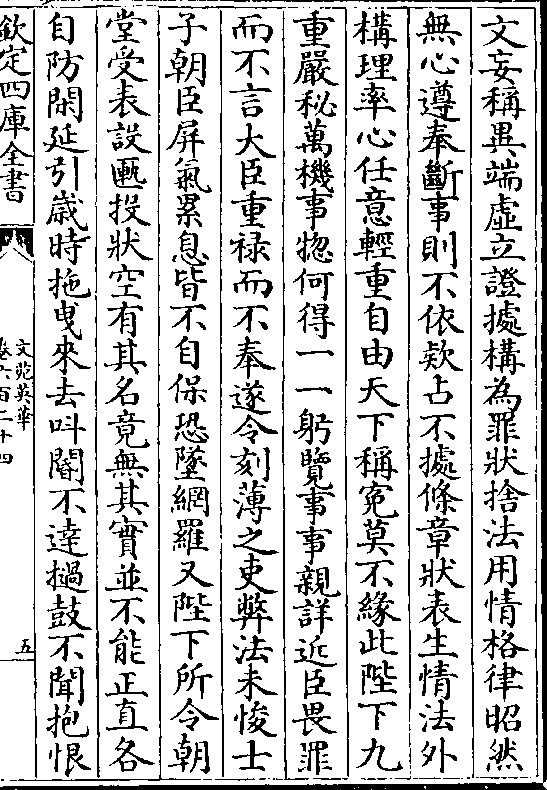 文妄稱異端虛立證據構為罪狀捨法用情格律昭然
無心遵奉斷事則不依欵占不據條章狀表生情法外
構理率心任意輕重自由天下稱冤莫不緣此陛下九
重嚴秘萬機事惣何得一一躬覽事事親詳近臣畏罪
而不言大臣重禄而不奉遂令刻薄之吏弊法未悛士
子朝臣屏氣累息皆不自保恐墜網羅又陛下所令朝
堂受表設匭投狀空有其名竟無其實並不能正直各
自防閑延引歳時拖曵來去叫閽不達撾鼓不聞抱恨
欽定四庫全書
文苑英華
卷六百二十四
五